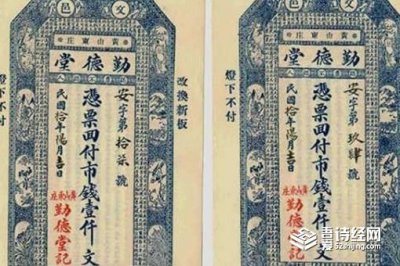 文邑
勤德堂
改換新板
安字第拾柒號
憑票囬付市錢壹仟文
民國拾年陽月吉日
勤德堂記
燈下不付
文邑
勤德堂
安字第玖肆號
憑票囬付市錢壹仟文
民國拾年陽月吉日
勤德堂記
燈下不付
吾诗经网
52shijing.com